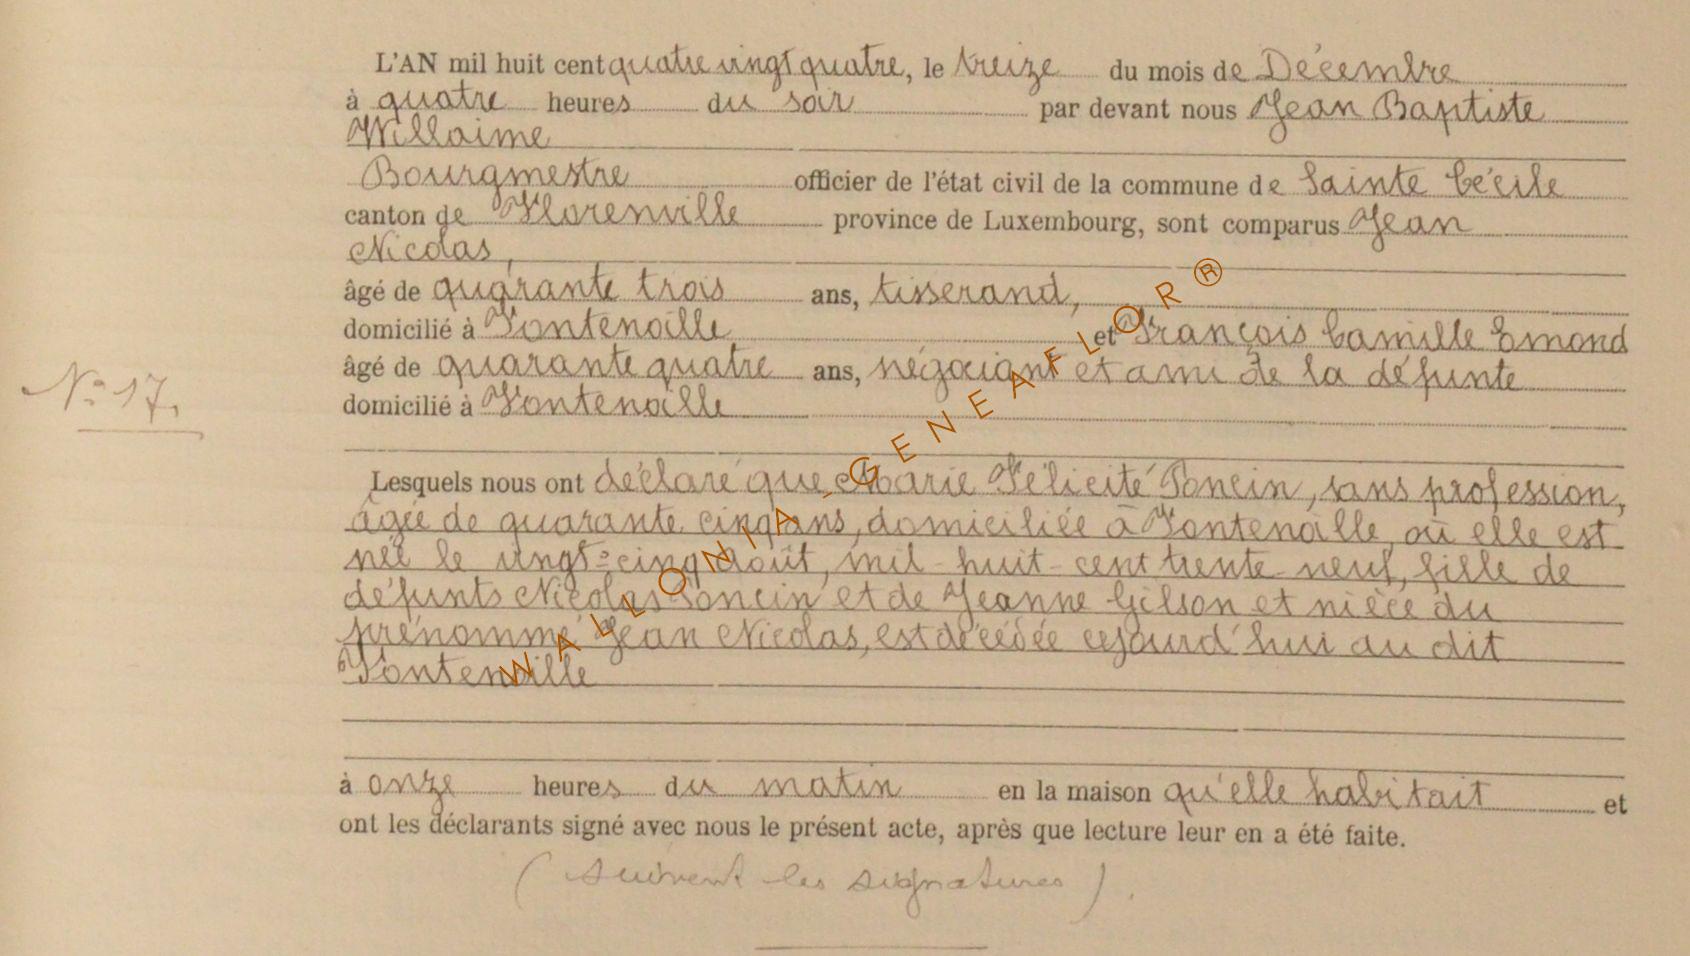 L'AN mil huit cent quatre vingt quatre, le treize du mois de Décembre
à quatre heures du soir par devant nous Jean Baptiste
Willaime
Bourgmestre officier de l'état civil de la commune de Sainte Cécile
canton de Florenville province de Luxembourg, sont comparus Jean
Nicolas,
âgé de quarante trois ans, tisserand,
domicilié à Fontenoille et François Camille Emond
âgé de quarante quatre ans, négociant et ami de la défunte
domicilié à Fontenoille
N° 17.
Lesquels nous ont déclaré que Marie Félicité Poncin, sans profession,
âgée de quarante cinq ans, domiciliée à Fontenoille, où elle est
née le vingt-cinq Août, mil-huit-cent trente-neuf, fille de
défunts Nicolas Poncin et de Jeanne Gilson et nièce du
prénommé Jean Nicolas, est décédée cejourd'hui au dit
Fontenoille
à onze heures du matin en la maison qu'elle habitait et
ont les déclarants signé avec nous le présent acte, après que lecture leur en a été faite.
(suivent les signatures).
WALLONIA-GENEAFLOR®